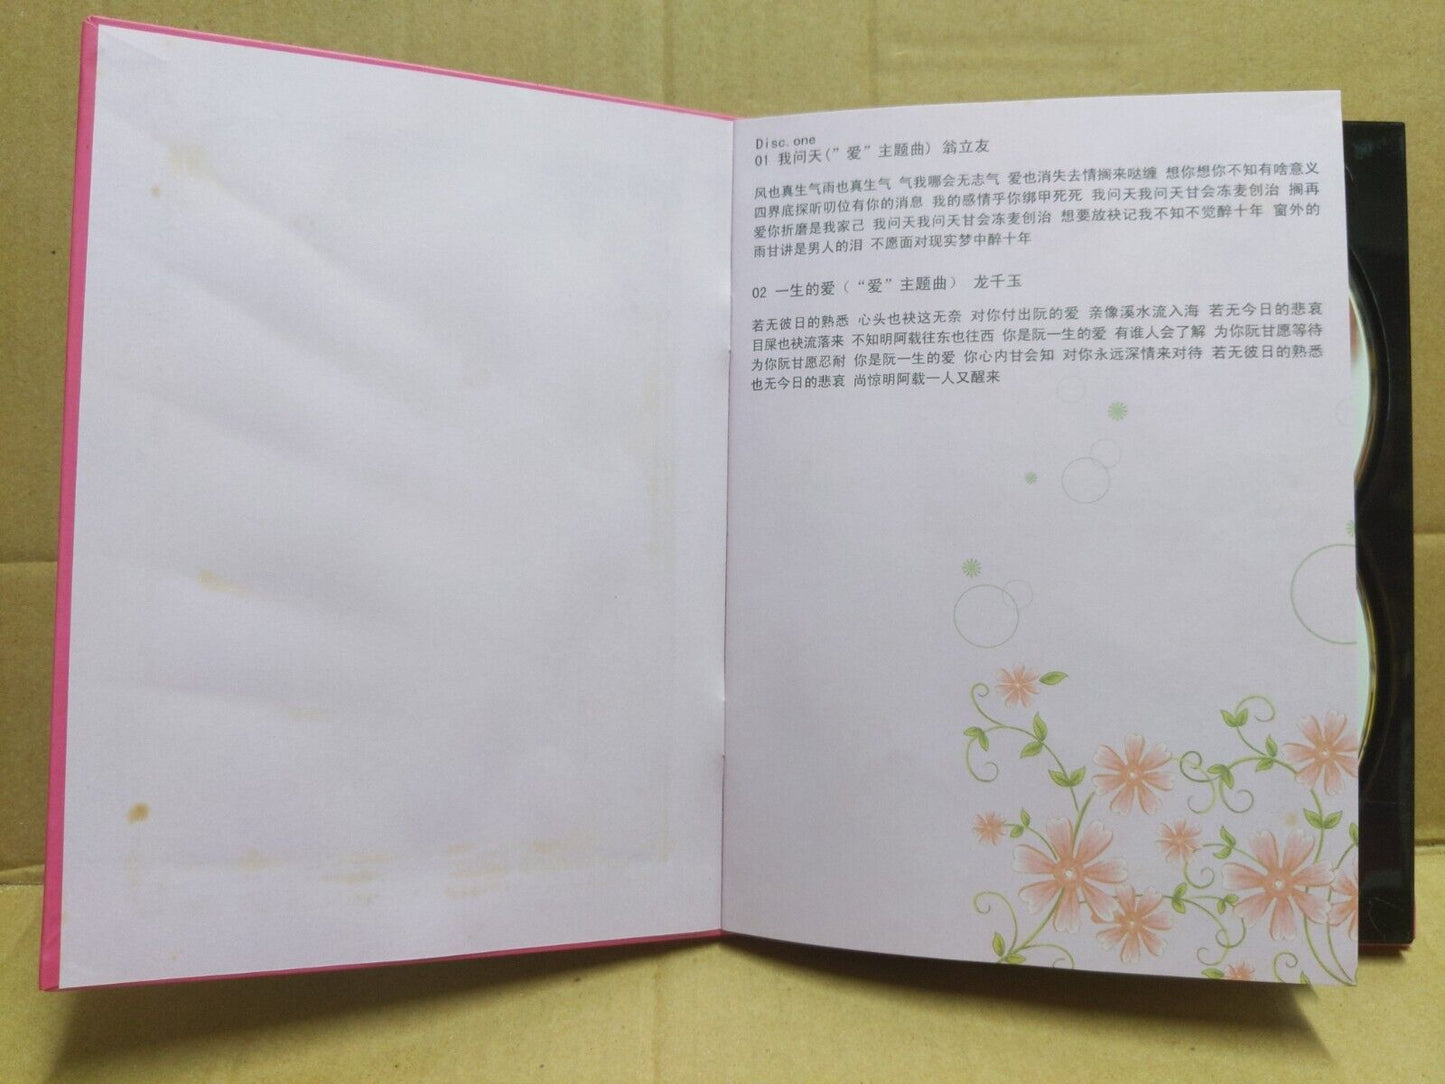 Disc.one
01 我问天(”爱”主题曲) 翁立友
风也真生气雨也真生气 气我哪会无志气 爱也消失去情搁来哒缠 想你想你不知有啥意义
四界底探听叨位有你的消息 我的感情乎你绑甲死死 我问天我问天甘会冻麦创治 搁再
爱你折磨是我家己 我问天我问天甘会冻麦创治 想要放袂记我不知不觉醉十年 窗外的
雨甘讲是男人的泪 不愿面对现实梦中醉十年
02 一生的爱（“爱”主题曲） 龙千玉
若无彼日的熟悉 心头也袂这无奈 对你付出阮的爱 亲像溪水流入海 若无今日的悲哀
目屎也袂流落来 不知明阿载往东也往西 你是阮一生的爱 有谁人会了解 为你阮甘愿等待
为你阮甘愿忍耐 你是阮一生的爱 你心内甘会知 对你永远深情来对待 若无彼日的熟悉
也无今日的悲哀 尚惊明阿载一人又醒来